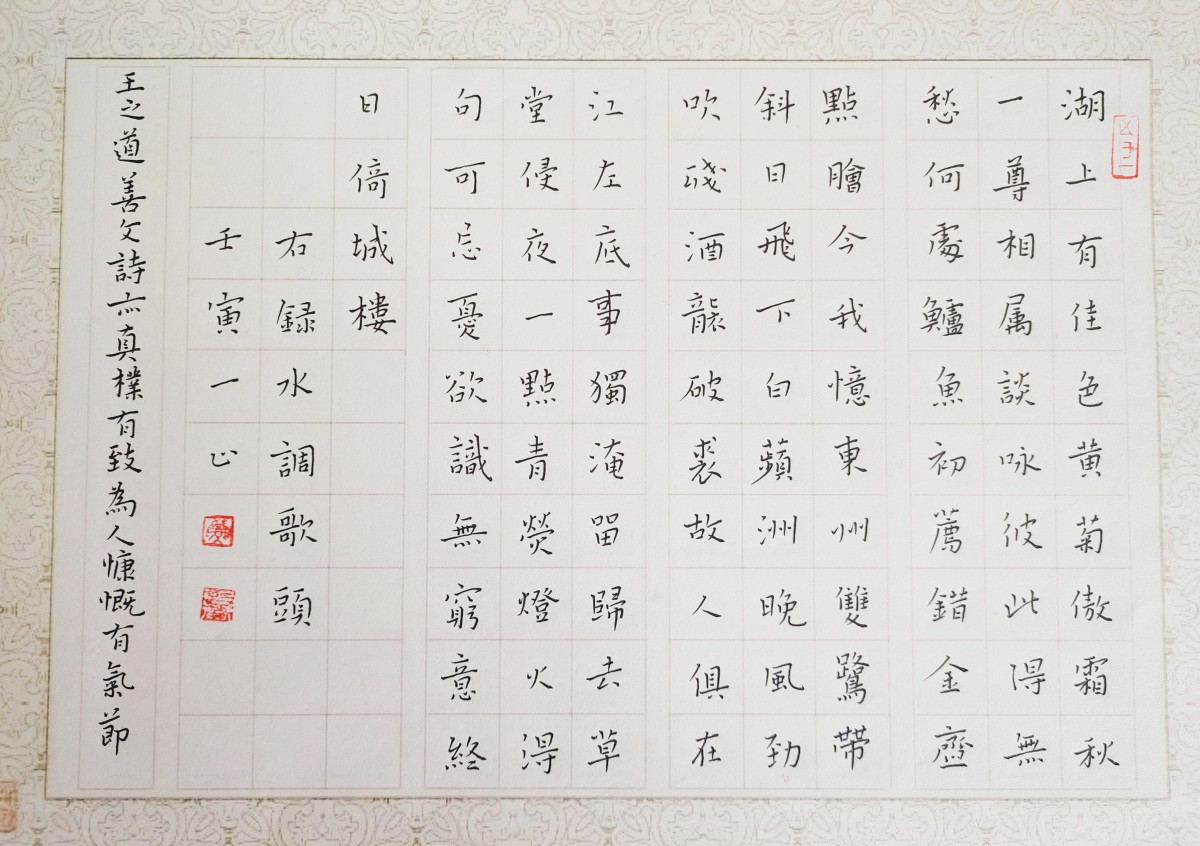 湖上有佳色黄菊傲霜秋
一尊相属談咏彼此得無
愁何處鱸魚初薦錯金虀
點膾今我憶東州雙鷺帶
斜日飛下白蘋洲晚風勁
吹殘酒襲破裘故人俱在
江左底事獨淹留歸去草
堂侵夜一點青熒燈火得
句可忘憂欲識無窮意終
日倚城樓
右録水調歌頭
壬寅一正
王之道善文詩亦真樸有致為人慷慨有氣節